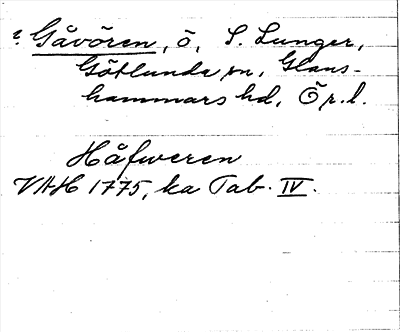 ? Gåvören, ö, S. Lunger,
Götlunda sn, Glans-
hammars hd, Ör. l.
Håfweren
VAH 1775, ka Tab. IV.